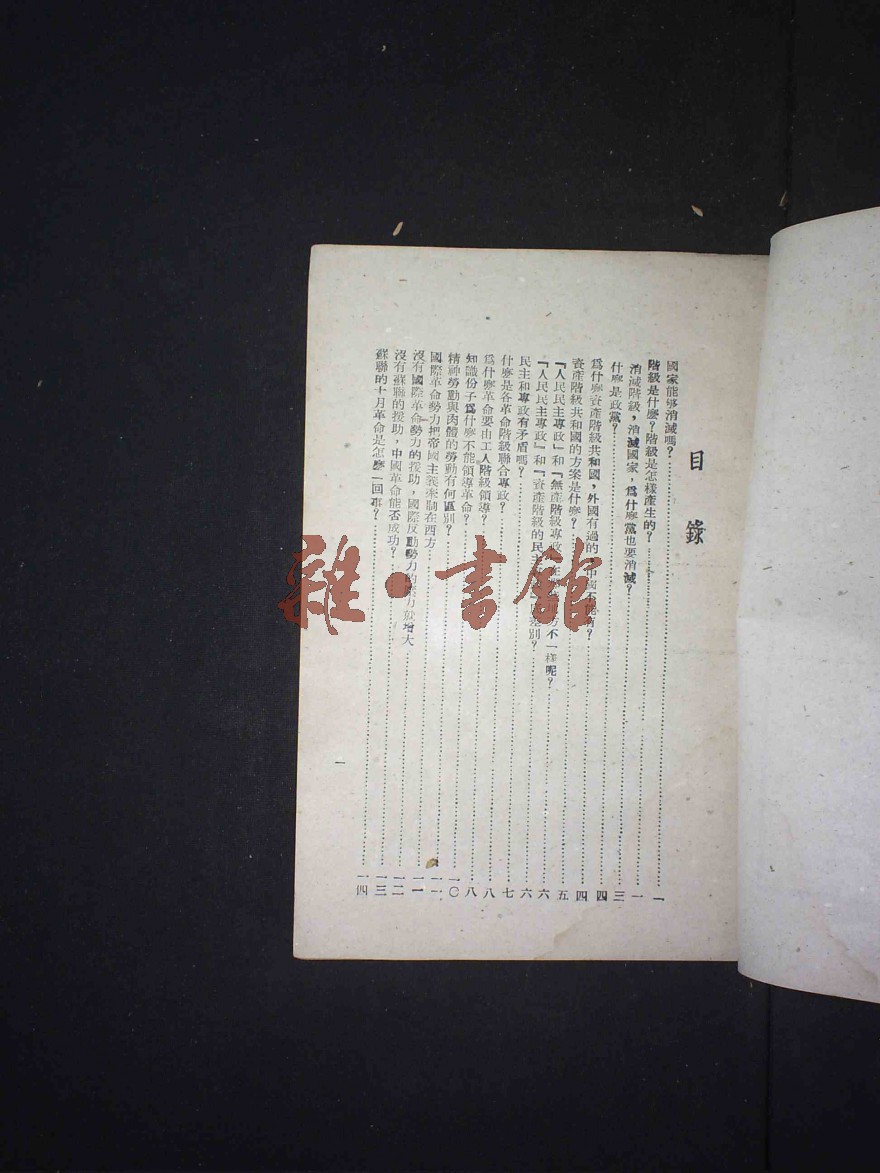 目錄
國家能够消滅嗎？……一
階級是什麼？階級是怎樣產生的？……一
消滅階級，消滅國家，爲什麼黨也要消滅？……三
什麼是政黨？……四
爲什麼資產階級共和國，外國有過的，中國不能有？……四
資產階級共和國的方案是什麼？……五
「人民民主專政」和「無產階級專政」不一樣呢？……六
「人民民主專政」和「資產階級的民主差別？……六
民主和專政有矛盾嗎？……七
什麼是各革命階級聯合專政？……八
爲什麼革命要由工人階級領導？……八
知識份子爲什麼不能領導革命？……一〇
精神勞動與肉體的勞動有何區別？……一一
國際革命勢力把帝國主義牽制在西方……一一
沒有國際革命勢力的援助，國際反動勢力的壓力就增大……一二
沒有蘇聯的援助，中國革命能否成功？……一三
蘇聯的十月革命是怎麼一回事？……一四
一
雜·書館